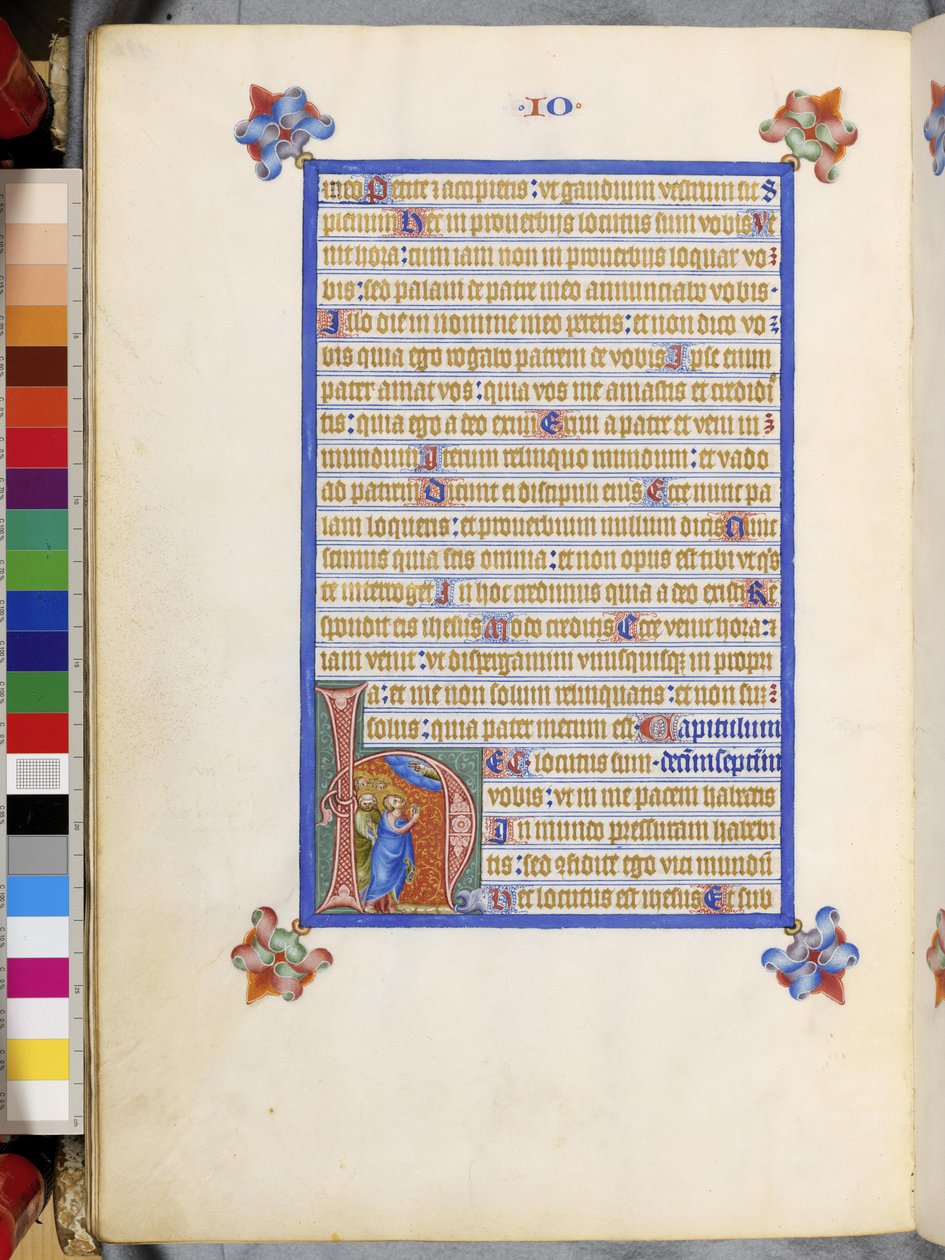 ·IO·
meo Petite ⁊ accipietis : vt gaudium vestrum sit
plenum Hec in prouerbijs locutus sum vobis Ve
nit hora : cum iam non in prouerbijs loquar vo
bis : sed palam de patre meo annunciabo vobis·
Illo die in nomine meo petetis : et non dico vo
bis quia ego rogabo patrem de vobis Ipse enim
pater amat vos : quia vos me amastis et credidi
tis : quia ego a deo exiui Exiui a patre et veni in
mundum Iterum relinquo mundum : et vado
ad patrem Dicunt ei discipuli eius Ecce nunc pa
lam loqueris : et prouerbium nullum dicis Nunc
scimus quia scis omnia : et non opus est tibi vt q̇s
te interroget In hoc credimus quia a deo existi Re
spondit eis ihesus Modo creditis Ecce venit hora : ⁊
iam venit : vt dispergamini vnusquisqꝫ in propri
a : et me non solum relinquatis : et non sum
solus : quia pater mecum est· Capitulum
HEC locutus sum· decim̄septim̄
vobis : vt in me pacem habeatis
In mundo pressuram habebi
tis : sed ꝯfidite ego vici mundū
Hec locutus est ihesus Et sub